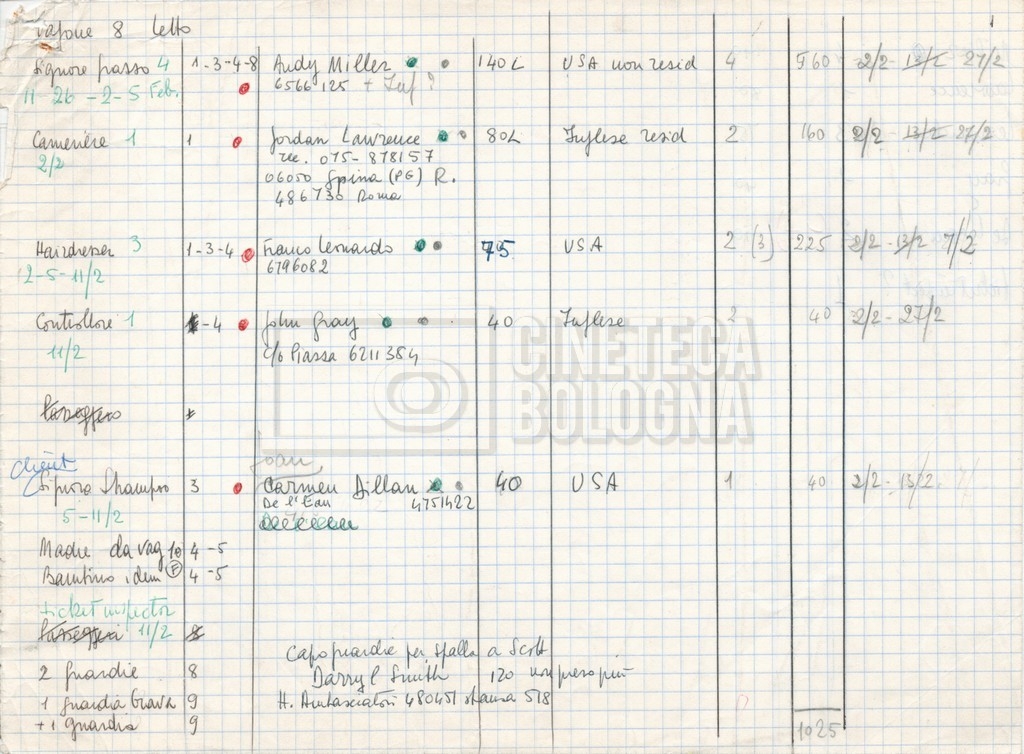 vagone 8 letto
1
Signore passo 4 1-3-4-8 Andy Miller 140 L USA non resid 4 560 2/2 - 13/2 27/2
11-26-2-5 Feb. 6566125 + Inf ?
Cameriere 1 1 Jordan Lawrence 80L Inglese resid 2 160 2/2 - 13/2 27/2
2/2 rec. 075-878157
06050 Spina (PG) R.
486730 Roma
Hairdresser 3 1-3-4 Franco Leonardo 75 USA 2 (3) 225 2/2 - 13/2 7/2
2-5-11/2 6796082
Controllore 1 -4 John Gray 40 Inglese 2 40 2/2 - 27/2
11/2 c/o Piassa 6211384
CINETECA
BOLOGNA
Passeggero
client Joan
Signora Shampoo 3 Carmen Dillan 40 USA 1 40 2/2 - 13/2
5-11/2 De l'Eau 4751422
Madre da vag 10 4-5
Bambino idem F 4-5
ticket inspector
Passeggeri 11/2 8
Capo guardie per spalla a Scott
2 guardie 8 Darryl Smith 120 non preso più
1 guardia brava 9 H. Ambasciatori 480451 stanza 518
+1 guardia 9 1025